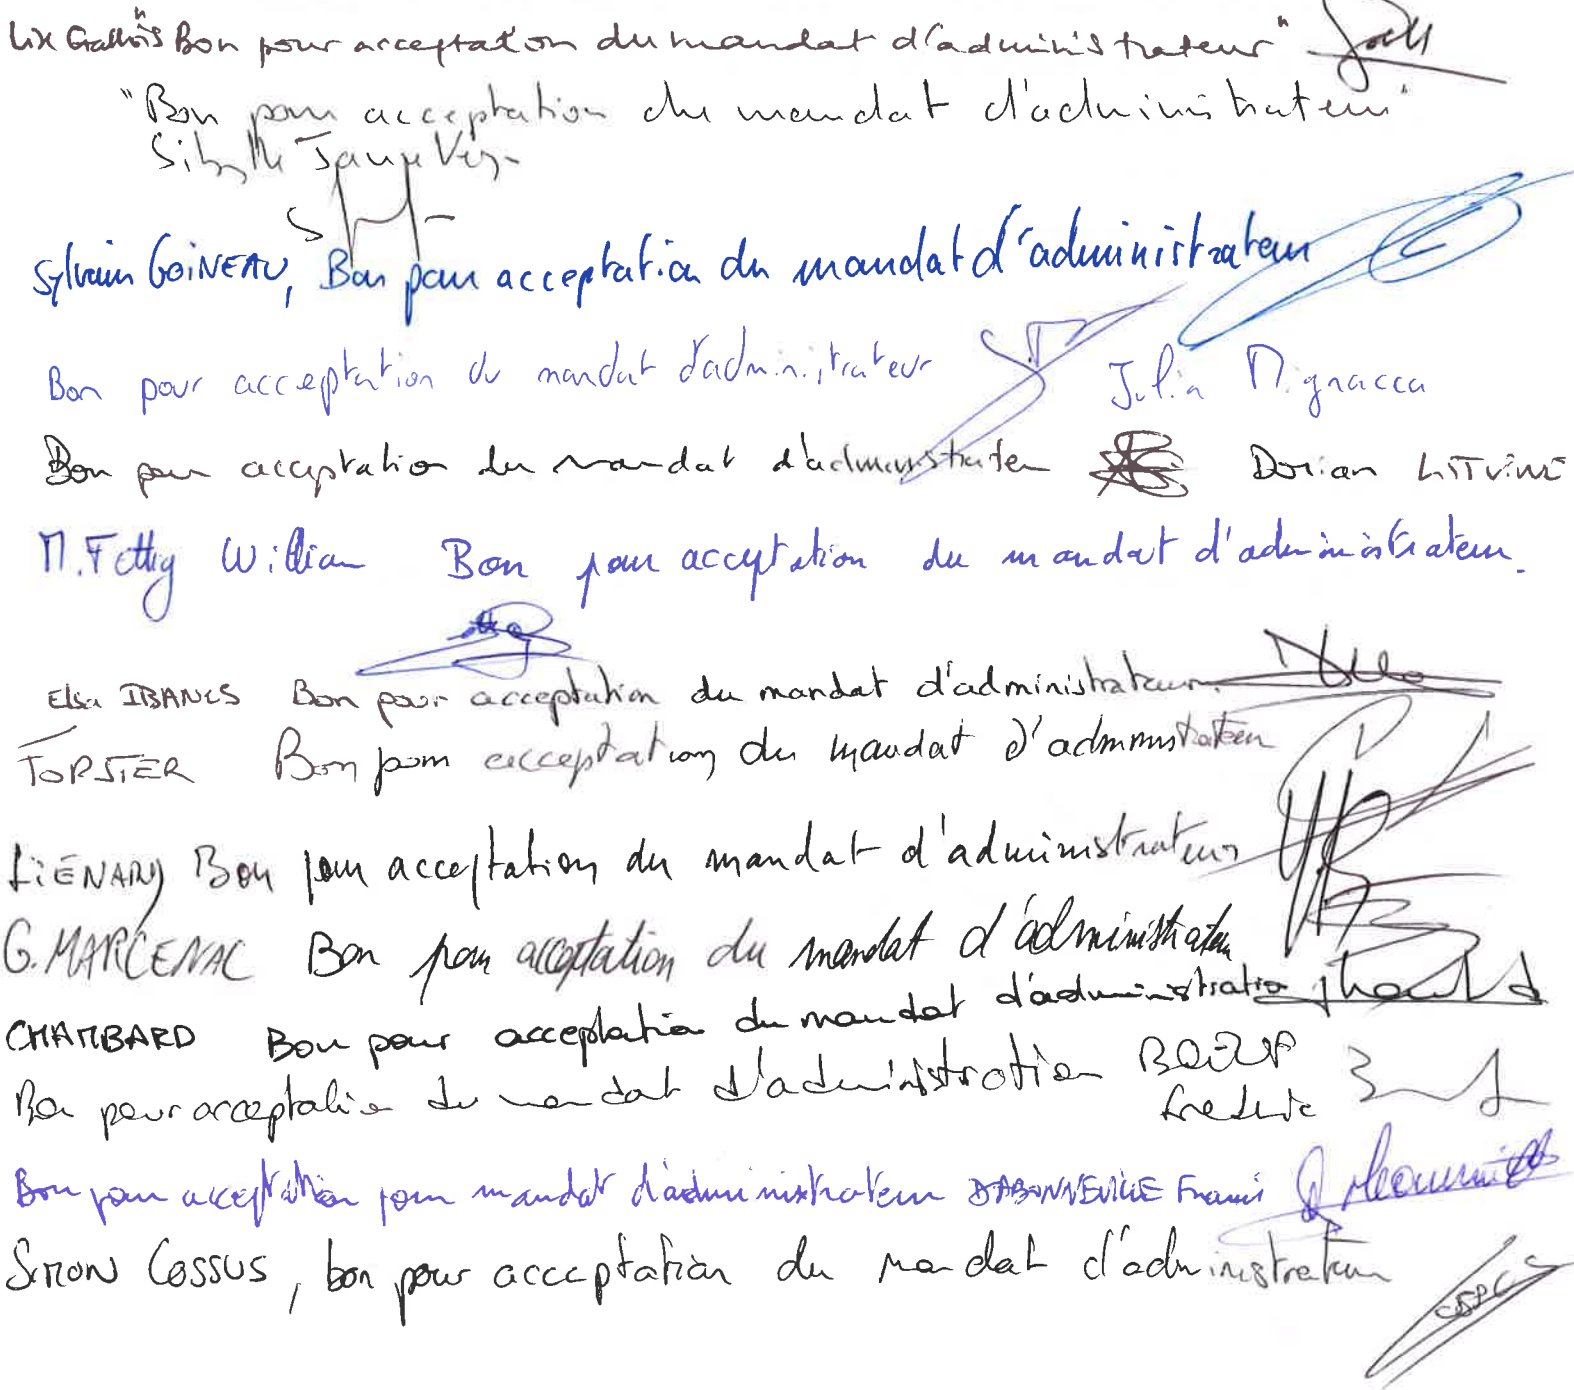 Lix Gallois "Bon pour acceptation du mandat d'administrateur"
"Bon pour acceptation du mandat d'administrateur"
Sylvain GOINEAU, Bon pour acceptation du mandat d'administrateur
Bon pour acceptation du mandat d'administrateur Julia Mignacca
Bon pour acceptation du mandat d'administrateur Dorian LITVINE
M. Fettig William Bon pour acceptation du mandat d'administrateur.
Elsa IBANES Bon pour acceptation du mandat d'administrateur.
Bon pour acceptation du mandat d'administrateur
LIENARD Bon pour acceptation du mandat d'administrateur
G. MARCENAC Bon pour acceptation du mandat d'administrateur
CHAMBARD Bon pour acceptation du mandat d'administration
Bon pour acceptation du mandat d'administration
Frédéric
Bon pour acceptation pour mandat d'administrateur DABONNEVILLE Francis
SIMON COSSUS, bon pour acceptation du mandat d'administrateur